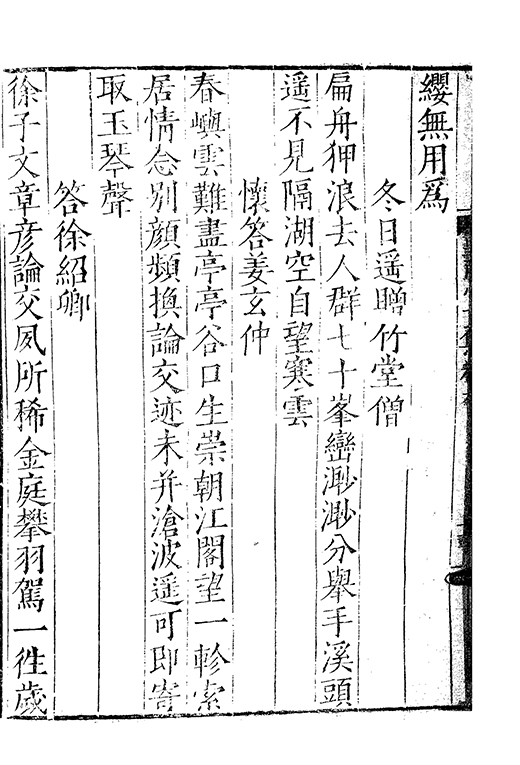 纓無用為
冬日遥贈竹堂僧
扁舟狎浪去人群七十峯巒渺渺分舉手溪頭
遥不見隔湖空自望寒雲
懷答姜玄仲
春嶼雲難盡亭亭谷口生崇朝江閣望一軫索
居情念別顔頻換論交迹未并滄波遥可即寄
取玉琴聲
答徐紹卿
徐子文章彦論交夙所稀金庭攀羽駕一徃歲